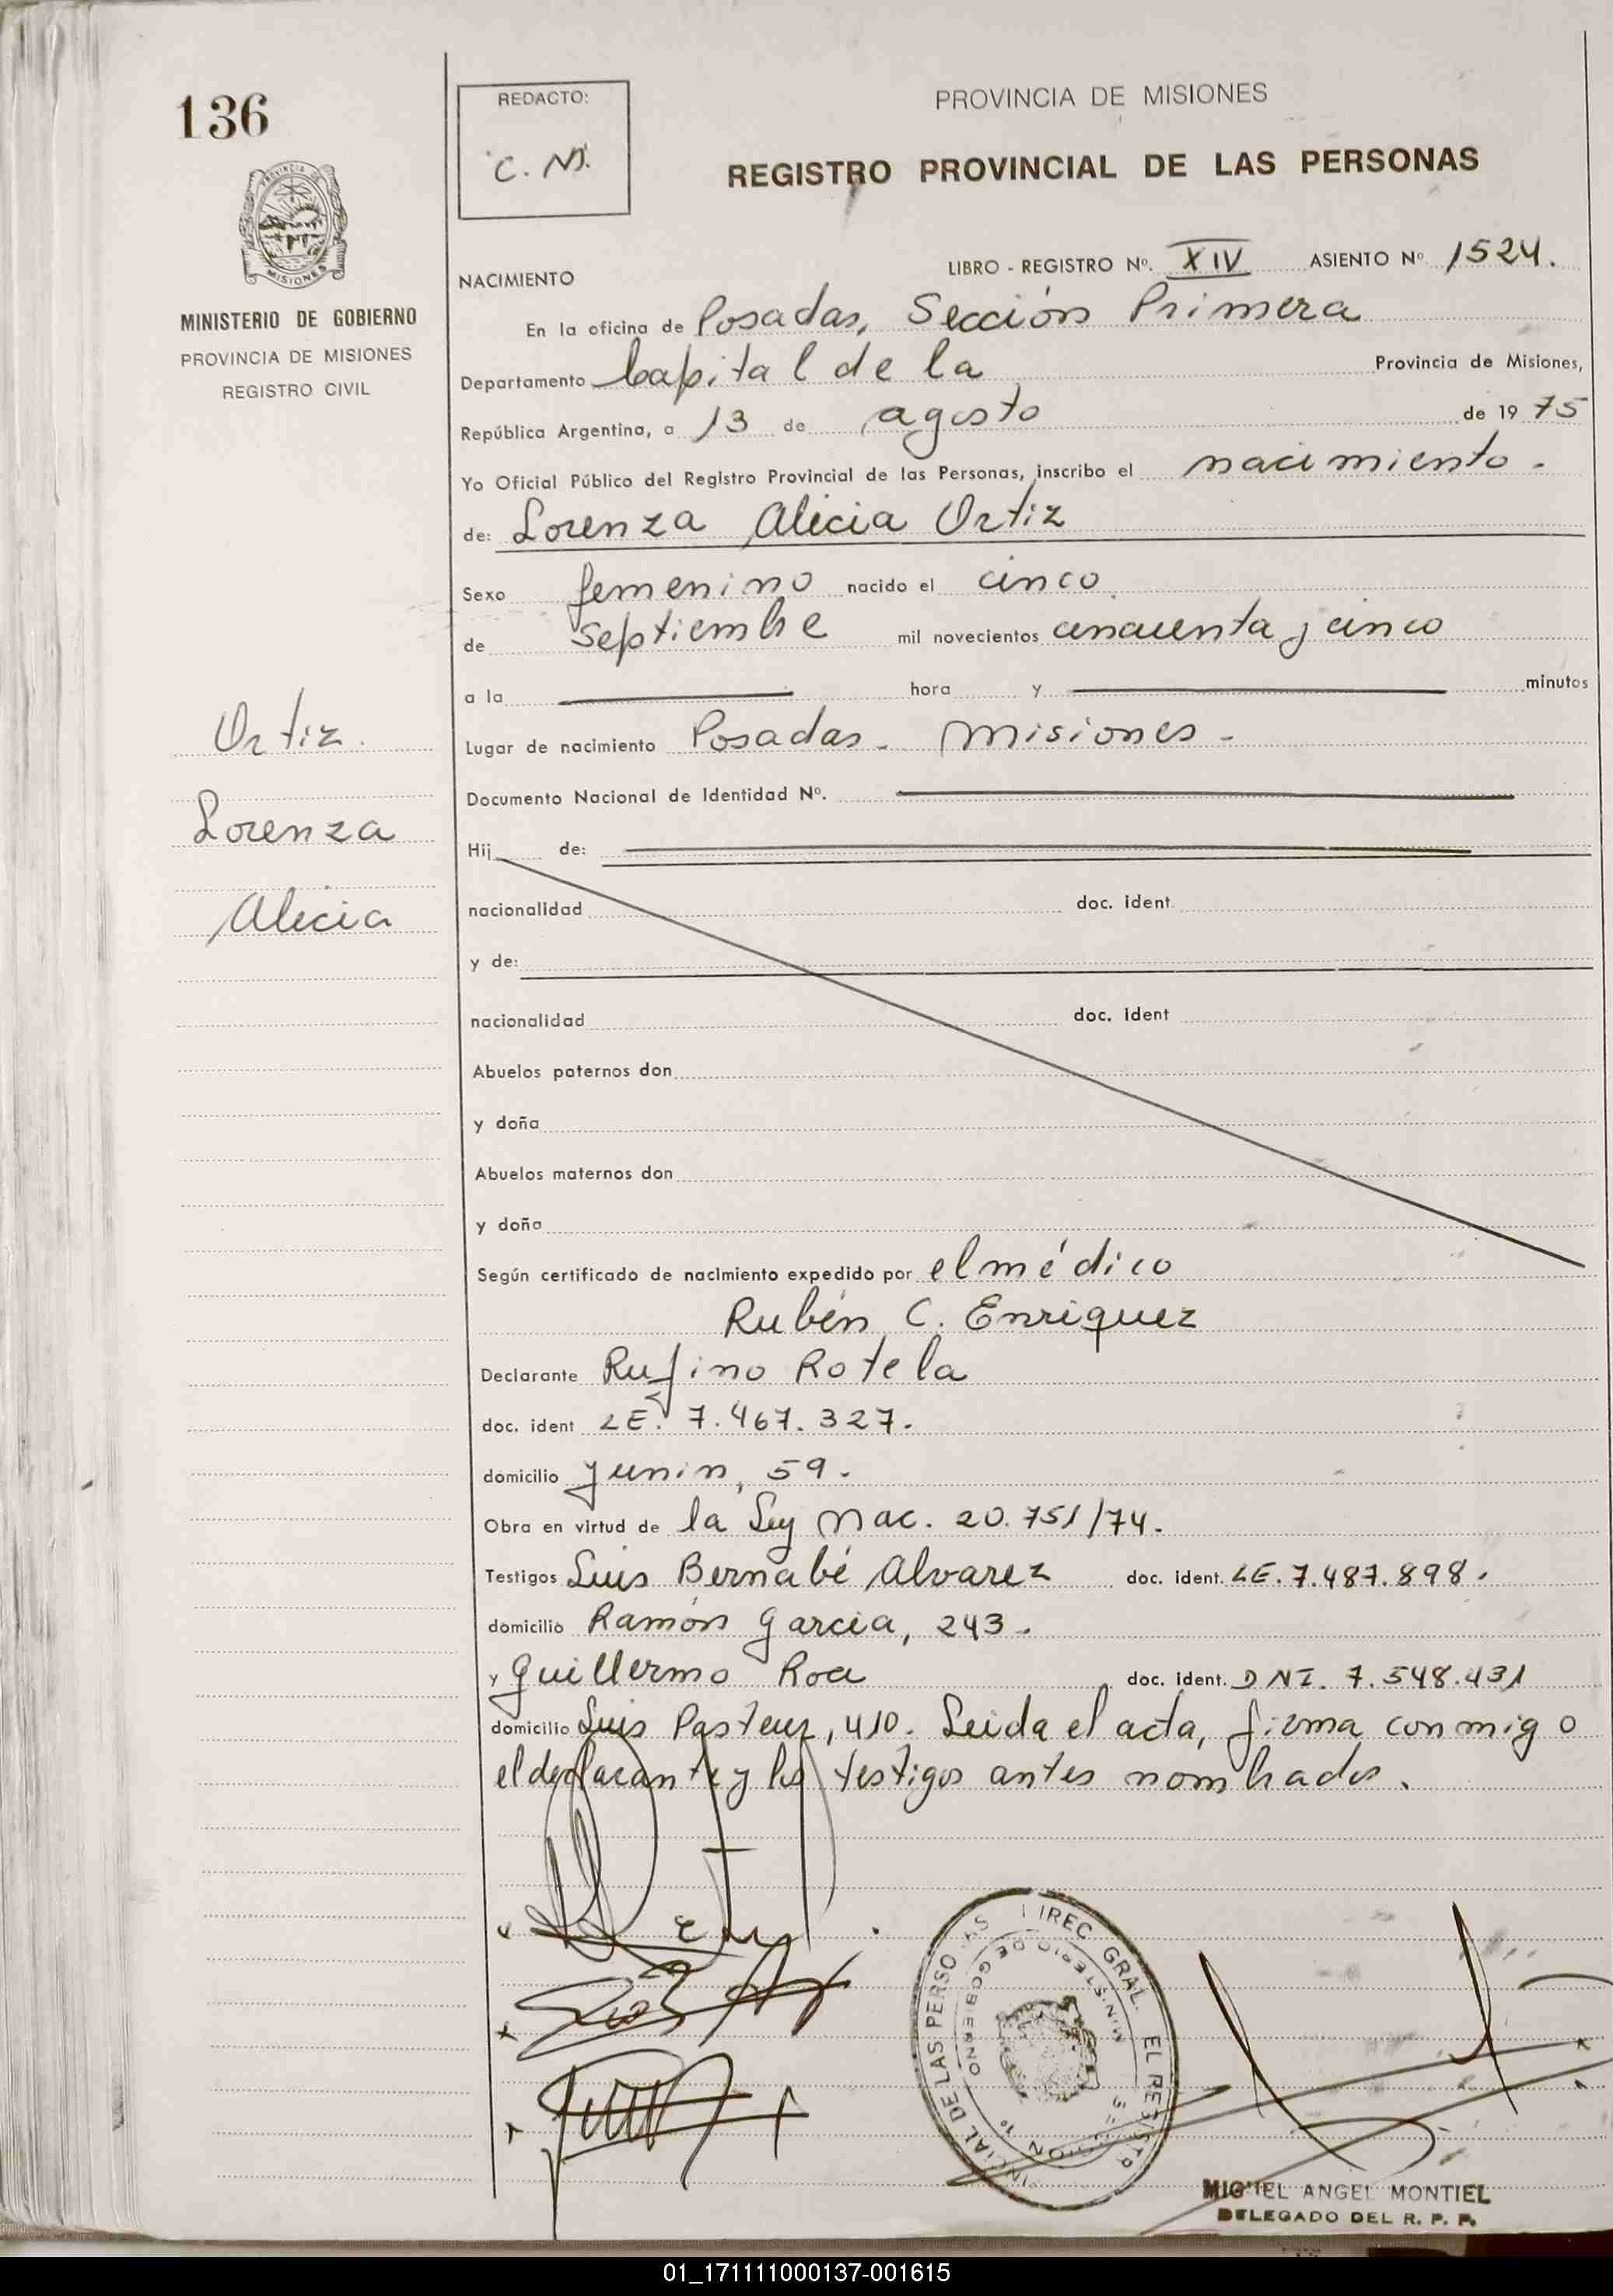 136
REDACTO:
C. N.
PROVINCIA DE MISIONES
REGISTRO PROVINCIAL DE LAS PERSONAS
PROVINCIA DE
MISIONES
MINISTERIO DE GOBIERNO
PROVINCIA DE MISIONES
REGISTRO CIVIL
LIBRO - REGISTRO Nº. XIV ASIENTO Nº 1524.
NACIMIENTO
En la oficina de Posadas, Sección Primera
Departamento Capital de la Provincia de Misiones,
República Argentina, a 13 de agosto de 1975
Yo Oficial Público del Registro Provincial de las Personas, inscribo el nacimiento.
de: Lorenza Alicia Ortiz
Sexo femenino nacido el cinco
de septiembre mil novecientos cincuenta y cinco
a la hora y minutos
Ortiz.
Lugar de nacimiento Posadas - Misiones -
Documento Nacional de Identidad Nº.
Lorenza
Hij de:
Alicia
nacionalidad doc. ident
y de:
nacionalidad doc. ident
Abuelos paternos don
y doña
Abuelos maternos don
y doña
Según certificado de nacimiento expedido por el médico
Rubén C. Enriquez
Declarante Rufino Rotela
doc. ident LE. 7.467.327.
domicilio Junin, 59.
Obra en virtud de la Ley Nac. 20.751/74.
Testigos Luis Bernabé Alvarez doc. ident. LE. 7.487.898.
domicilio Ramón Garcia, 243.
y Guillermo Roa doc. ident. DNI. 7.548.431
domicilio Luis Pasteur, 410. Leida el acta, firma conmigo
el declarante y los testigos antes nombrados.
DIREC GRAL. EL REGISTR
INCIAL DE LAS PERSONAS
MINISTERIO DE GOBIERNO
SECCION 1º
MIGUEL ANGEL MONTIEL
DELEGADO DEL R. P. P.
01_171111000137-001615